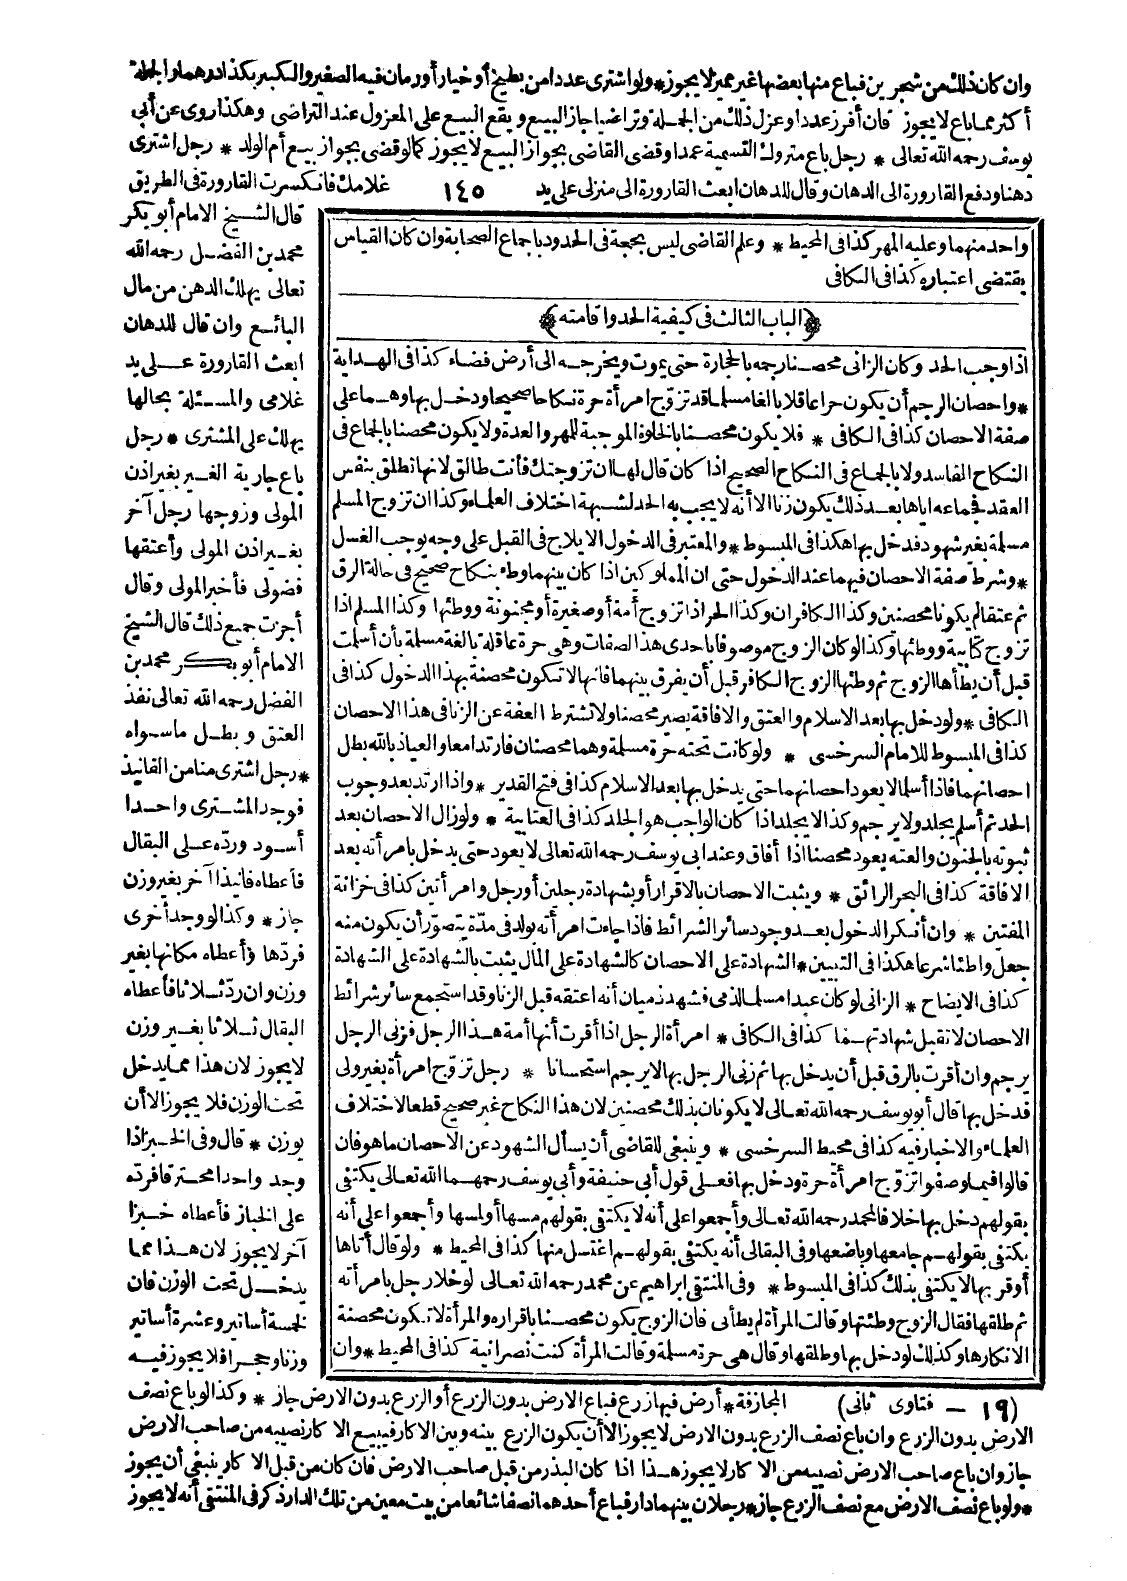 وان كان ذلك من شجرين فباع منها بعضها غير مميز لا يجوز * ولو اشترى عددا من بطيخ أو خيار أو رمان فيه الصغير والكبير بكذا درهما والجملة
أكثر مما باع لا يجوز فان أفرز عددا وعزل ذلك من الجملة وتراضيا جاز البيع ويقع البيع على المعزول عند التراضى وهكذا روى عن أبى
يوسف رحمه الله تعالى * رجل باع متروك التسمية عمدا وقضى القاضى بجواز البيع لا يجوز كما لو قضى بجواز بيع أم الولد * رجل اشترى
دهنا ودفع القارورة الى الدهان وقال للدهان ابعث القارورة الى منزلى على يد ١٤٥ غلامك فانكسرت القارورة فى الطريق
قال الشيخ الامام أبو بكر
محمد بن الفضل رحمه الله
تعالى يهلك الدهن من مال
البائع وان قال للدهان
ابعث القارورة على يد
غلامى والمسئلة بحالها
يهلك على المشترى * رجل
باع جارية الغير بغير اذن
المولى وزوجها رجل آخر
بغير اذن المولى وأعتقها
فضولى فأخبر المولى وقال
أجزت جميع ذلك قال الشيخ
الامام أبو بكر محمد بن
الفضل رحمه الله تعالى نفذ
العتق وبطل ما سواه
* رجل اشترى منا من الفانيذ
فوجد المشترى واحدا
أسود ورده على البقال
فأعطاه فانيذا آخر بغير وزن
جاز * وكذا لو وجد أخرى
فردها وأعطاه مكانها بغير
وزن وان رد ثلاثا فأعطاه
البقال ثلاثا بغير وزن
لا يجوز لان هذا مما يدخل
تحت الوزن فلا يجوز الا أن
يوزن * قال وفى الخبز اذا
وجد واحدا محترقا فرده
على الخباز فأعطاه خبزا
آخر لا يجوز لان هذا مما
يدخل تحت الوزن فان
خمسة أساتير وعشرة أساتير
وزنا وحجرا فلا يجوز فيه
واحد منهما وعليه المهر كذا فى المحيط * وعلم القاضى ليس بحجة فى الحدود باجماع الصحابة وان كان القياس
يقتضى اعتباره كذا فى الكافى
﴿الباب الثالث فى كيفية الحد واقامته﴾
اذا وجب الحد وكان الزانى محصنا رجمه بالحجارة حتى يموت ويخرجه الى أرض فضاء كذا فى الهداية
* واحصان الرجم أن يكون حرا عاقلا بالغا مسلما قد تزوج امرأة حرة نكاحا صحيحا ودخل بها وهما على
صفة الاحصان كذا فى الكافى * فلا يكون محصنا بالخلوة الموجبة للمهر والعدة ولا يكون محصنا بالجماع فى
النكاح الفاسد ولا بالجماع فى النكاح الصحيح اذا كان قال لها ان تزوجتك فأنت طالق لانها تطلق بنفس
العقد فجماعه اياها بعد ذلك يكون زنا الا أنه لا يجب به الحد لشبهة اختلاف العلماء وكذا ان تزوج المسلم
مسلمة بغير شهود فدخل بها هكذا فى المبسوط * والمعتبر فى الدخول الايلاج فى القبل على وجه يوجب الغسل
* وشرط صفة الاحصان فيهما عند الدخول حتى ان المملوكين اذا كان بينهما وطء بنكاح صحيح فى حالة الرق
ثم عتقا لم يكونا محصنين وكذا الكافران وكذا الحر اذا تزوج أمة أو صغيرة أو مجنونة ووطئها وكذا المسلم اذا
تزوج كتابية ووطئها وكذا لو كان الزوج موصوفا باحدى هذه الصفات وهى حرة عاقلة بالغة مسلمة بأن أسلمت
قبل أن يطأها الزوج ثم وطئها الزوج الكافر قبل أن يفرق بينهما فانها لا تكون محصنة بهذا الدخول كذا فى
الكافى * ولو دخل بها بعد الاسلام والعتق والافاقة يصير محصنا ولا تشترط العفة عن الزنا فى هذا الاحصان
كذا فى المبسوط للامام السرخسى * ولو كانت تحته حرة مسلمة وهما محصنان فارتدا معا والعياذ بالله بطل
احصانهما فاذا أسلما لا يعود احصانهما حتى يدخل بها بعد الاسلام كذا فى فتح القدير * واذا ارتد بعد وجوب
الحد ثم أسلم يجلد ولا يرجم وكذا لا يجلد اذا كان الواجب هو الجلد كذا فى العتابية * ولو زال الاحصان بعد
ثبوته بالجنون والعته يعود محصنا اذا أفاق وعند ابى يوسف رحمه الله تعالى لا يعود حتى يدخل بامرأته بعد
الافاقة كذا فى البحر الرائق * ويثبت الاحصان بالاقرار أو بشهادة رجلين أو رجل وامرأتين كذا فى خزانة
المفتين * وان أنكر الدخول بعد وجود سائر الشرائط فاذا جاءت امرأته بولد فى مدة يتصور أن يكون منه
جعل واطئا شرعا هكذا فى التبيين * الشهادة على الاحصان كالشهادة على المال يثبت بالشهادة على الشهادة
كذا فى الايضاح * الزانى لو كان عبدا مسلما لذمى فشهد ذميان أنه اعتقه قبل الزنا وقد استجمع سائر شرائط
الاحصان لا تقبل شهادتهما كذا فى الكافى * امرأة الرجل اذا أقرت أنها أمة هذا الرجل فزنى الرجل
يرجم وان أقرت بالرق قبل أن يدخل بها ثم زنى الرجل بها لا يرجم استحسانا * رجل تزوج امرأة بغير ولى
فدخل بها قال أبو يوسف رحمه الله تعالى لا يكونان بذلك محصنين لان هذا النكاح غير صحيح قطعا لاختلاف
العلماء والاخبار فيه كذا فى محيط السرخسى * وينبغى للقاضى أن يسأل الشهود عن الاحصان ما هو فان
قالوا فيما وصفوا تزوج امرأة حرة ودخل بها فعلى قول أبى حنيفة وأبى يوسف رحمهما الله تعالى يكتفى
بقولهم دخل بها خلافا لمحمد رحمه الله تعالى وأجمعوا على أنه لا يكتفى بقولهم مسها أو لمسها وأجمعوا على أنه
يكتفى بقولهم جامعها وباضعها وفى البقالى أنه يكتفى بقولهم اغتسل منها كذا فى المحيط * ولو قال أتاها
أو قربها لا يكتفى بذلك كذا فى المبسوط * وفى المنتقى ابراهيم عن محمد رحمه الله تعالى لو خلا رجل بامرأته
ثم طلقها فقال الزوج وطئتها وقالت المرأة لم يطأنى فان الزوج يكون محصنا باقراره والمرأة لا تكون محصنة
لانكارها وكذلك لو دخل بها وطلقها وقال هى حرة مسلمة وقالت المرأة كنت نصرانية كذا فى المحيط * وان
(١٩ - فتاوى ثانى) المجازفة * أرض فيها زرع فباع الارض بدون الزرع أو الزرع بدون الارض جاز * وكذا لو باع نصف
الارض بدون الزرع وان باع نصف الزرع بدون الارض لا يجوز الا أن يكون الزرع بينه وبين الاكار فيبيع الاكار نصيبه من صاحب الارض
جاز وان باع صاحب الارض نصيبه من الاكار لا يجوز هذا اذا كان البذر من قبل صاحب الارض فان كان من قبل الاكار ينبغى أن يجوز
* ولو باع نصف الارض مع نصف الزرع جاز * رجلان بينهما دار فباع أحدهما نصفا شائعا من بيت معين من تلك الدار ذكر فى المنتقى أنه لا يجوز